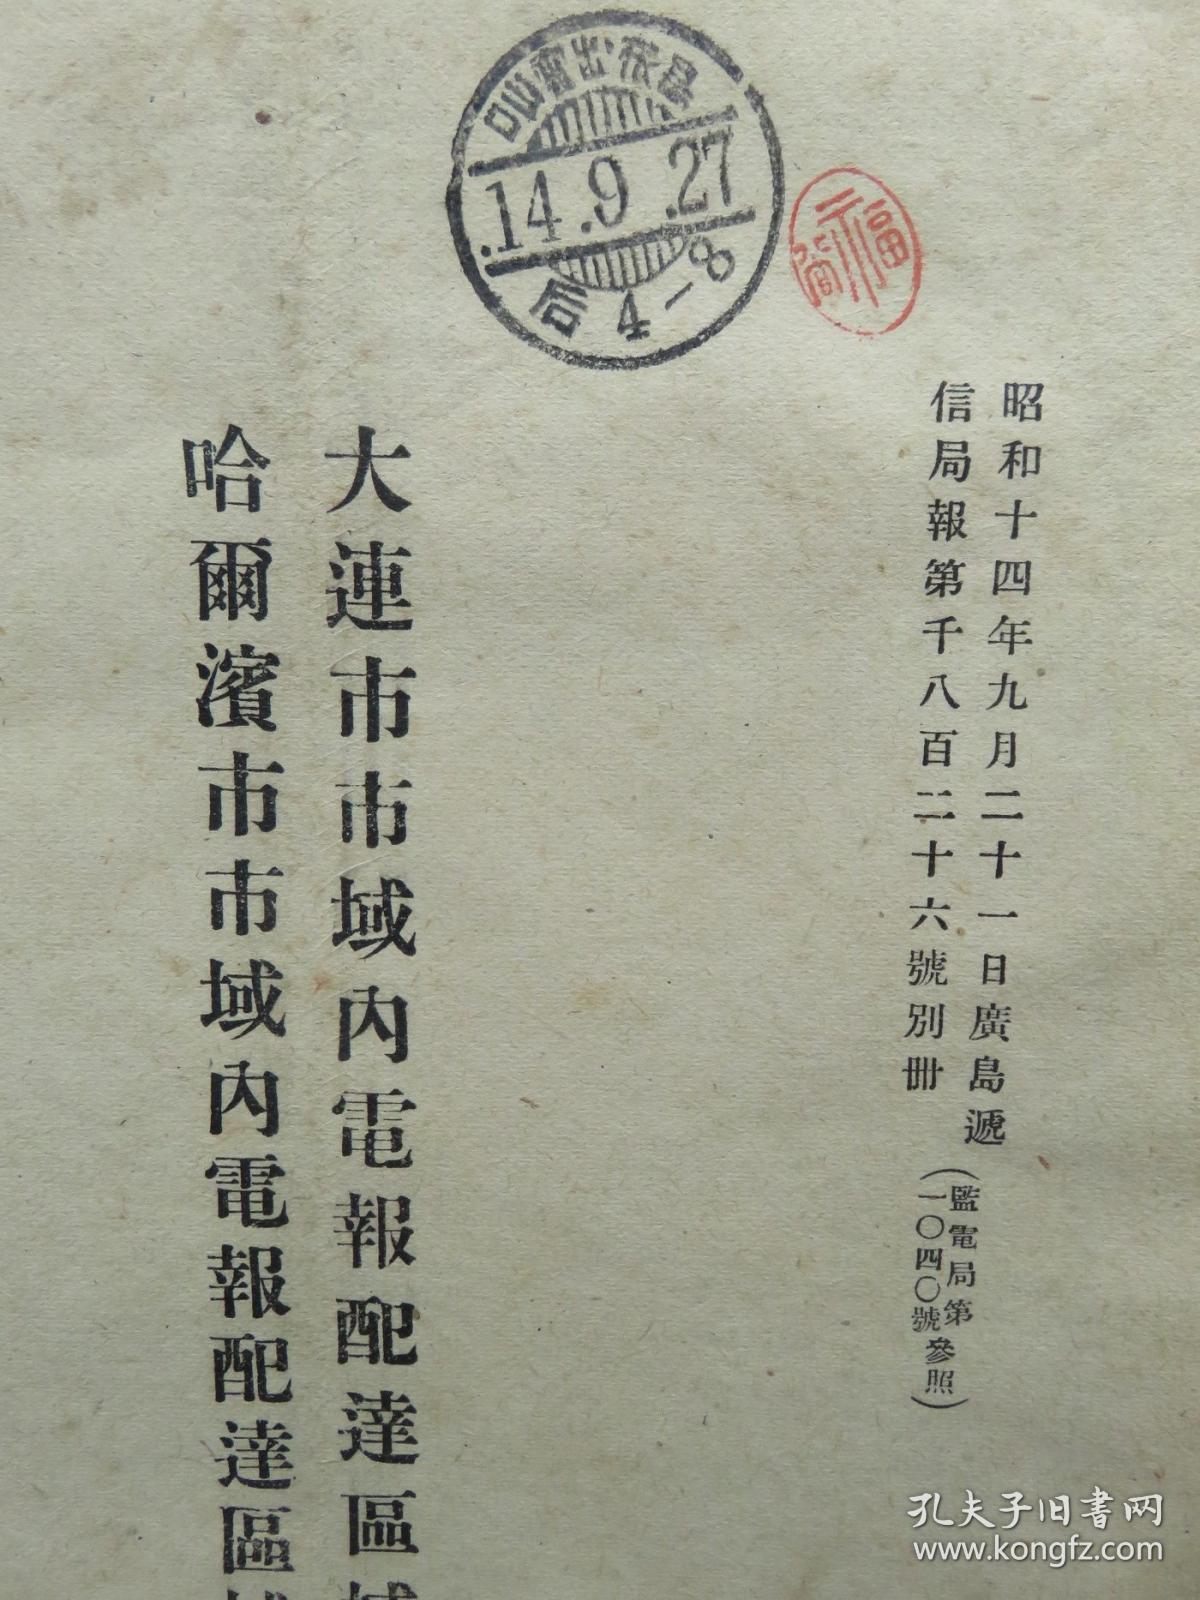 .14.9.27
后4-8
昭和十四年九月二十一日廣島遞
信局報第千八百二十六號別冊
(監電局第
一〇四〇號參照)
大連市市域內電報配達區域
哈爾濱市市域內電報配達區域
孔夫子旧书网
www.kongfz.com